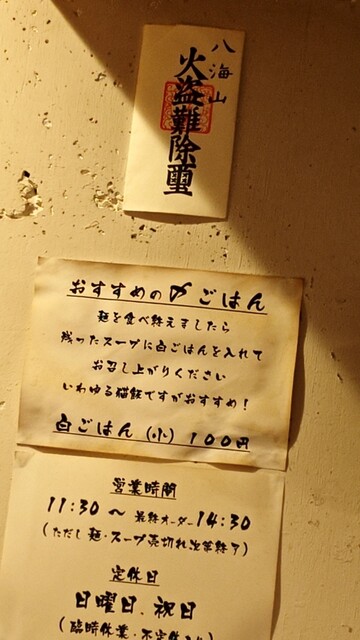 八海山
火盗難除璽
おすすめの〆ごはん
麺を食べ終えましたら
残ったスープに白ごはんを入れて
お召し上がりください
いわゆる猫飯ですがおすすめ！
白ごはん（小）100円
営業時間
11:30〜最終オーダー14:30
（ただし麺・スープ売切れ次第終了）
定休日
日曜日、祝日
（臨時休業・不定休あり）